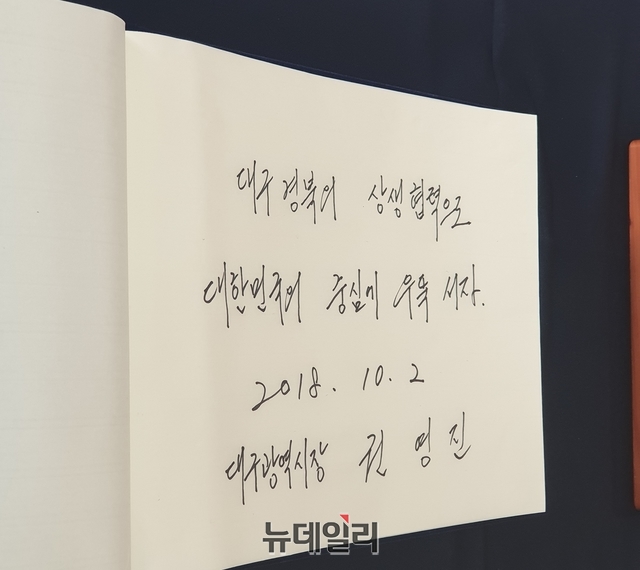 대구 경북의 상생협력으로
대한민국의 중심에 우뚝 서자.
2018. 10. 2
대구광역시장 권 영 진
뉴데일리